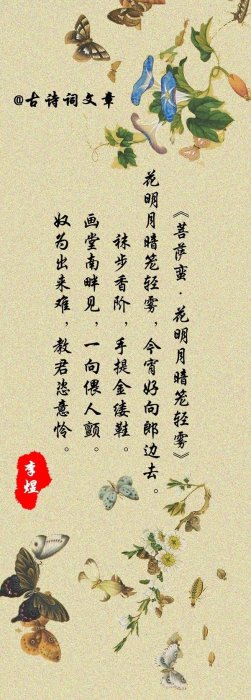 @古诗词文章
《菩萨蛮·花明月暗笼轻雾》
花明月暗笼轻雾，今宵好向郎边去。
袜步香阶，手提金缕鞋。
画堂南畔见，一向偎人颤。
奴为出来难，教君恣意怜。
李煜